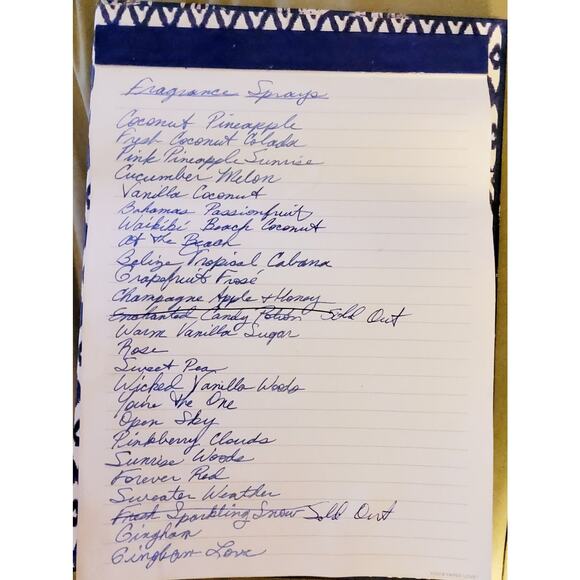 Fragrance Sprays
Coconut Pineapple
Fresh Coconut Colada
Pink Pineapple Sunrise
Cucumber Melon
Vanilla Coconut
Bahamas Passionfruit
Waikiki Beach Coconut
At the Beach
Belize Tropical Cabana
Grapefruit Frosé
Champagne Apple & Honey
Enchanted Candy Potion Sold Out
Warm Vanilla Sugar
Rose
Sweet Pea
Wicked Vanilla Woods
You're the One
Open Sky
Pinkberry Clouds
Sunrise Woods
Forever Red
Sweater Weather
Fresh Sparkling Snow Sold Out
Gingham
Gingham Love